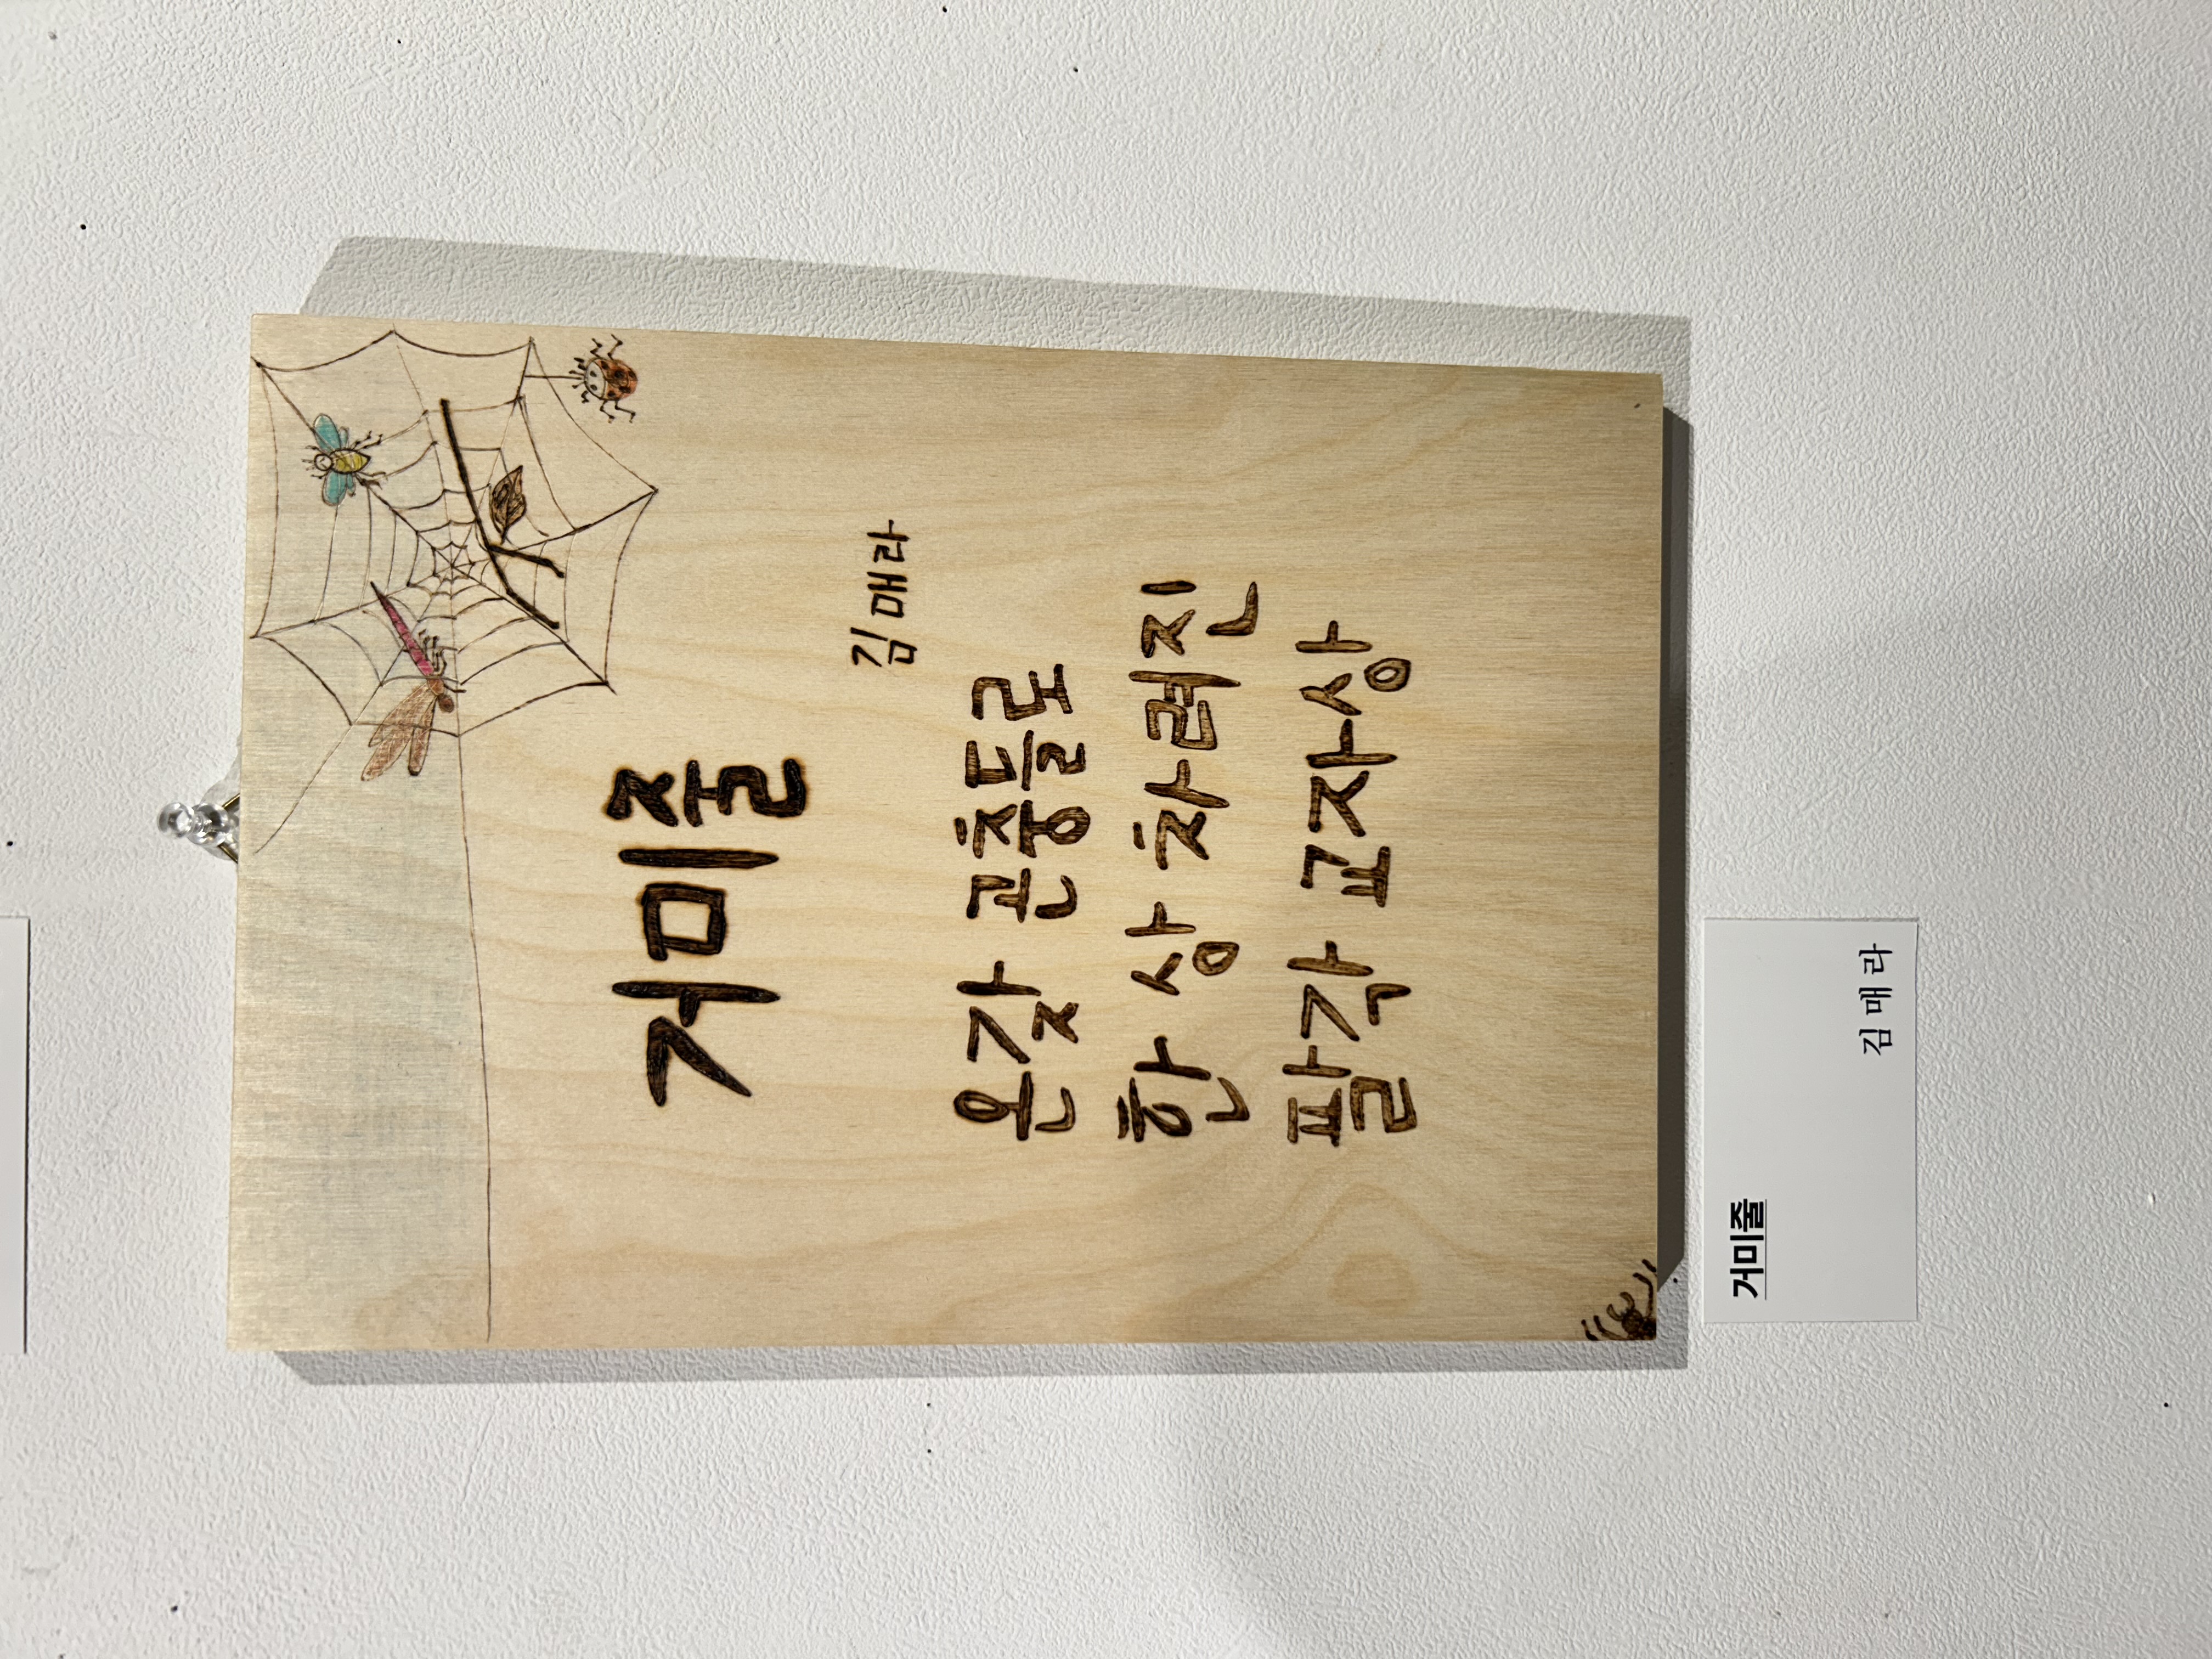 거미줄
김매라
온갖 곤충들로
한 상 차려진
팔각 교자상
거미줄
김매라